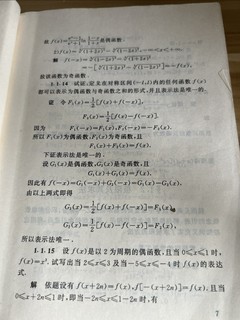 2) f(x)=
解 f(-x)=
=-f(x),
故该函数为奇函数.
1.1.14 试证:定义在对称区间(-l,l)内的任何函数 f(x)
都可以表示为偶函数与奇函数之和的形式,并且表示法是唯一的.
证 令 F₁(x)=1/2[f(x)+f(-x)],
F₂(x)=1/2[f(x)-f(-x)].
因为 F₁(-x)=F₁(x),F₂(-x)=-F₂(x).
所以 F₁(x)为偶函数,F₂(x)为奇函数,且
F₁(x)+F₂(x)=f(x).
下证表示法是唯一的.
设 G₁(x)是偶函数,G₂(x)是奇函数,且
G₁(x)+G₂(x)=f(x),
因此有 f(-x)=G₁(-x)+G₂(-x)=G₁(x)-G₂(x).
由以上两式即得
G₁(x)=1/2[f(x)+f(-x)]=F₁(x),
G₂(x)=1/2[f(x)-f(-x)]=F₂(x),
所以表示法唯一.
1.1.15 设 f(x)是以 2 为周期的偶函数,且当 0≤x≤1 时,
f(x)=x². 试写出当 2≤x≤3 及当-5≤x≤-4 时 f(x)的表达
式.
解 依题设有 f(x+2n)=f(x),f[-(x+2n)]=f(x). 且当
0≤x+2n≤1 时,即当-2n≤x≤1-2n 时,有
7